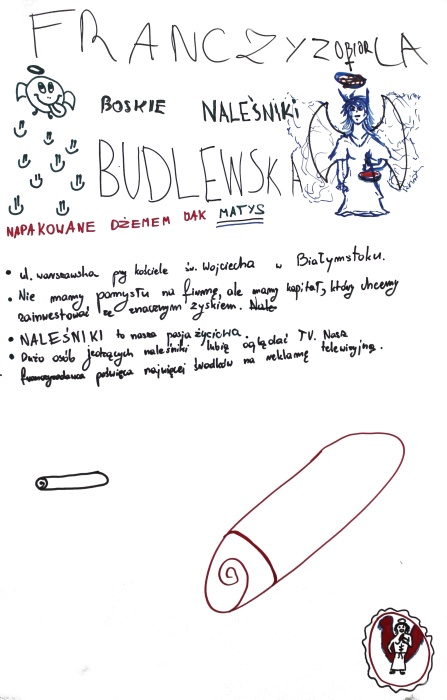 FRANCZYZOBIORCA
BOSKIE NALEŚNIKI
BUDLEWSKA
NAPAKOWANE DŻEMEM JAK MATYS
• ul. warszawska przy kościele św. Wojciecha w Białymstoku.
• Nie mamy pomysłu na firmę, ale mamy kapitał, który chcemy
zainwestować ze znacznym zyskiem. Nale
• NALEŚNIKI to nasza pasja życiowa.
• Dużo osób jedzących naleśniki lubią oglądać TV. Nasz
franczyzodawca poświęca najwięcej środków na reklamę telewizyjną.